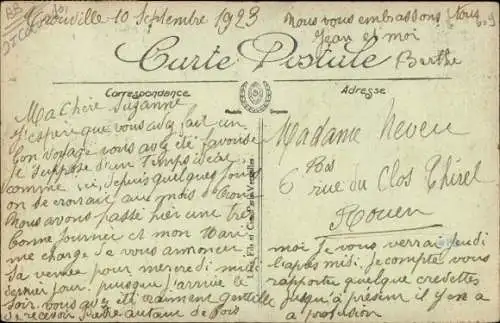 Trouville 10 Septembre 1923
Nous vous embrassons tous
Jean et moi
Berthe
Carte Postale
Correspondance
Adresse
Ma Chère Suzanne
J'espère que vous avez fait un
bon voyage vous avez été favorisé
je suppose d'un temps idéal
comme ici, depuis quelques jours
on se croirait aux mois d'
Nous avons passé hier une très
bonne journée et mon Mari
me charge de vous annoncer
sa venue pour mercredi
dernier jour. puisque j'arrive le
soir. vous avez été vraiment gentille
de recevoir autant de fois
Madame Neveu
6 bis
rue du Clos Thirel
Rouen
moi Je vous verrai Jeudi
l'après midi. Je compte vous
rapporter quelques crevettes
jusqu'à présent il y en a
a profusion